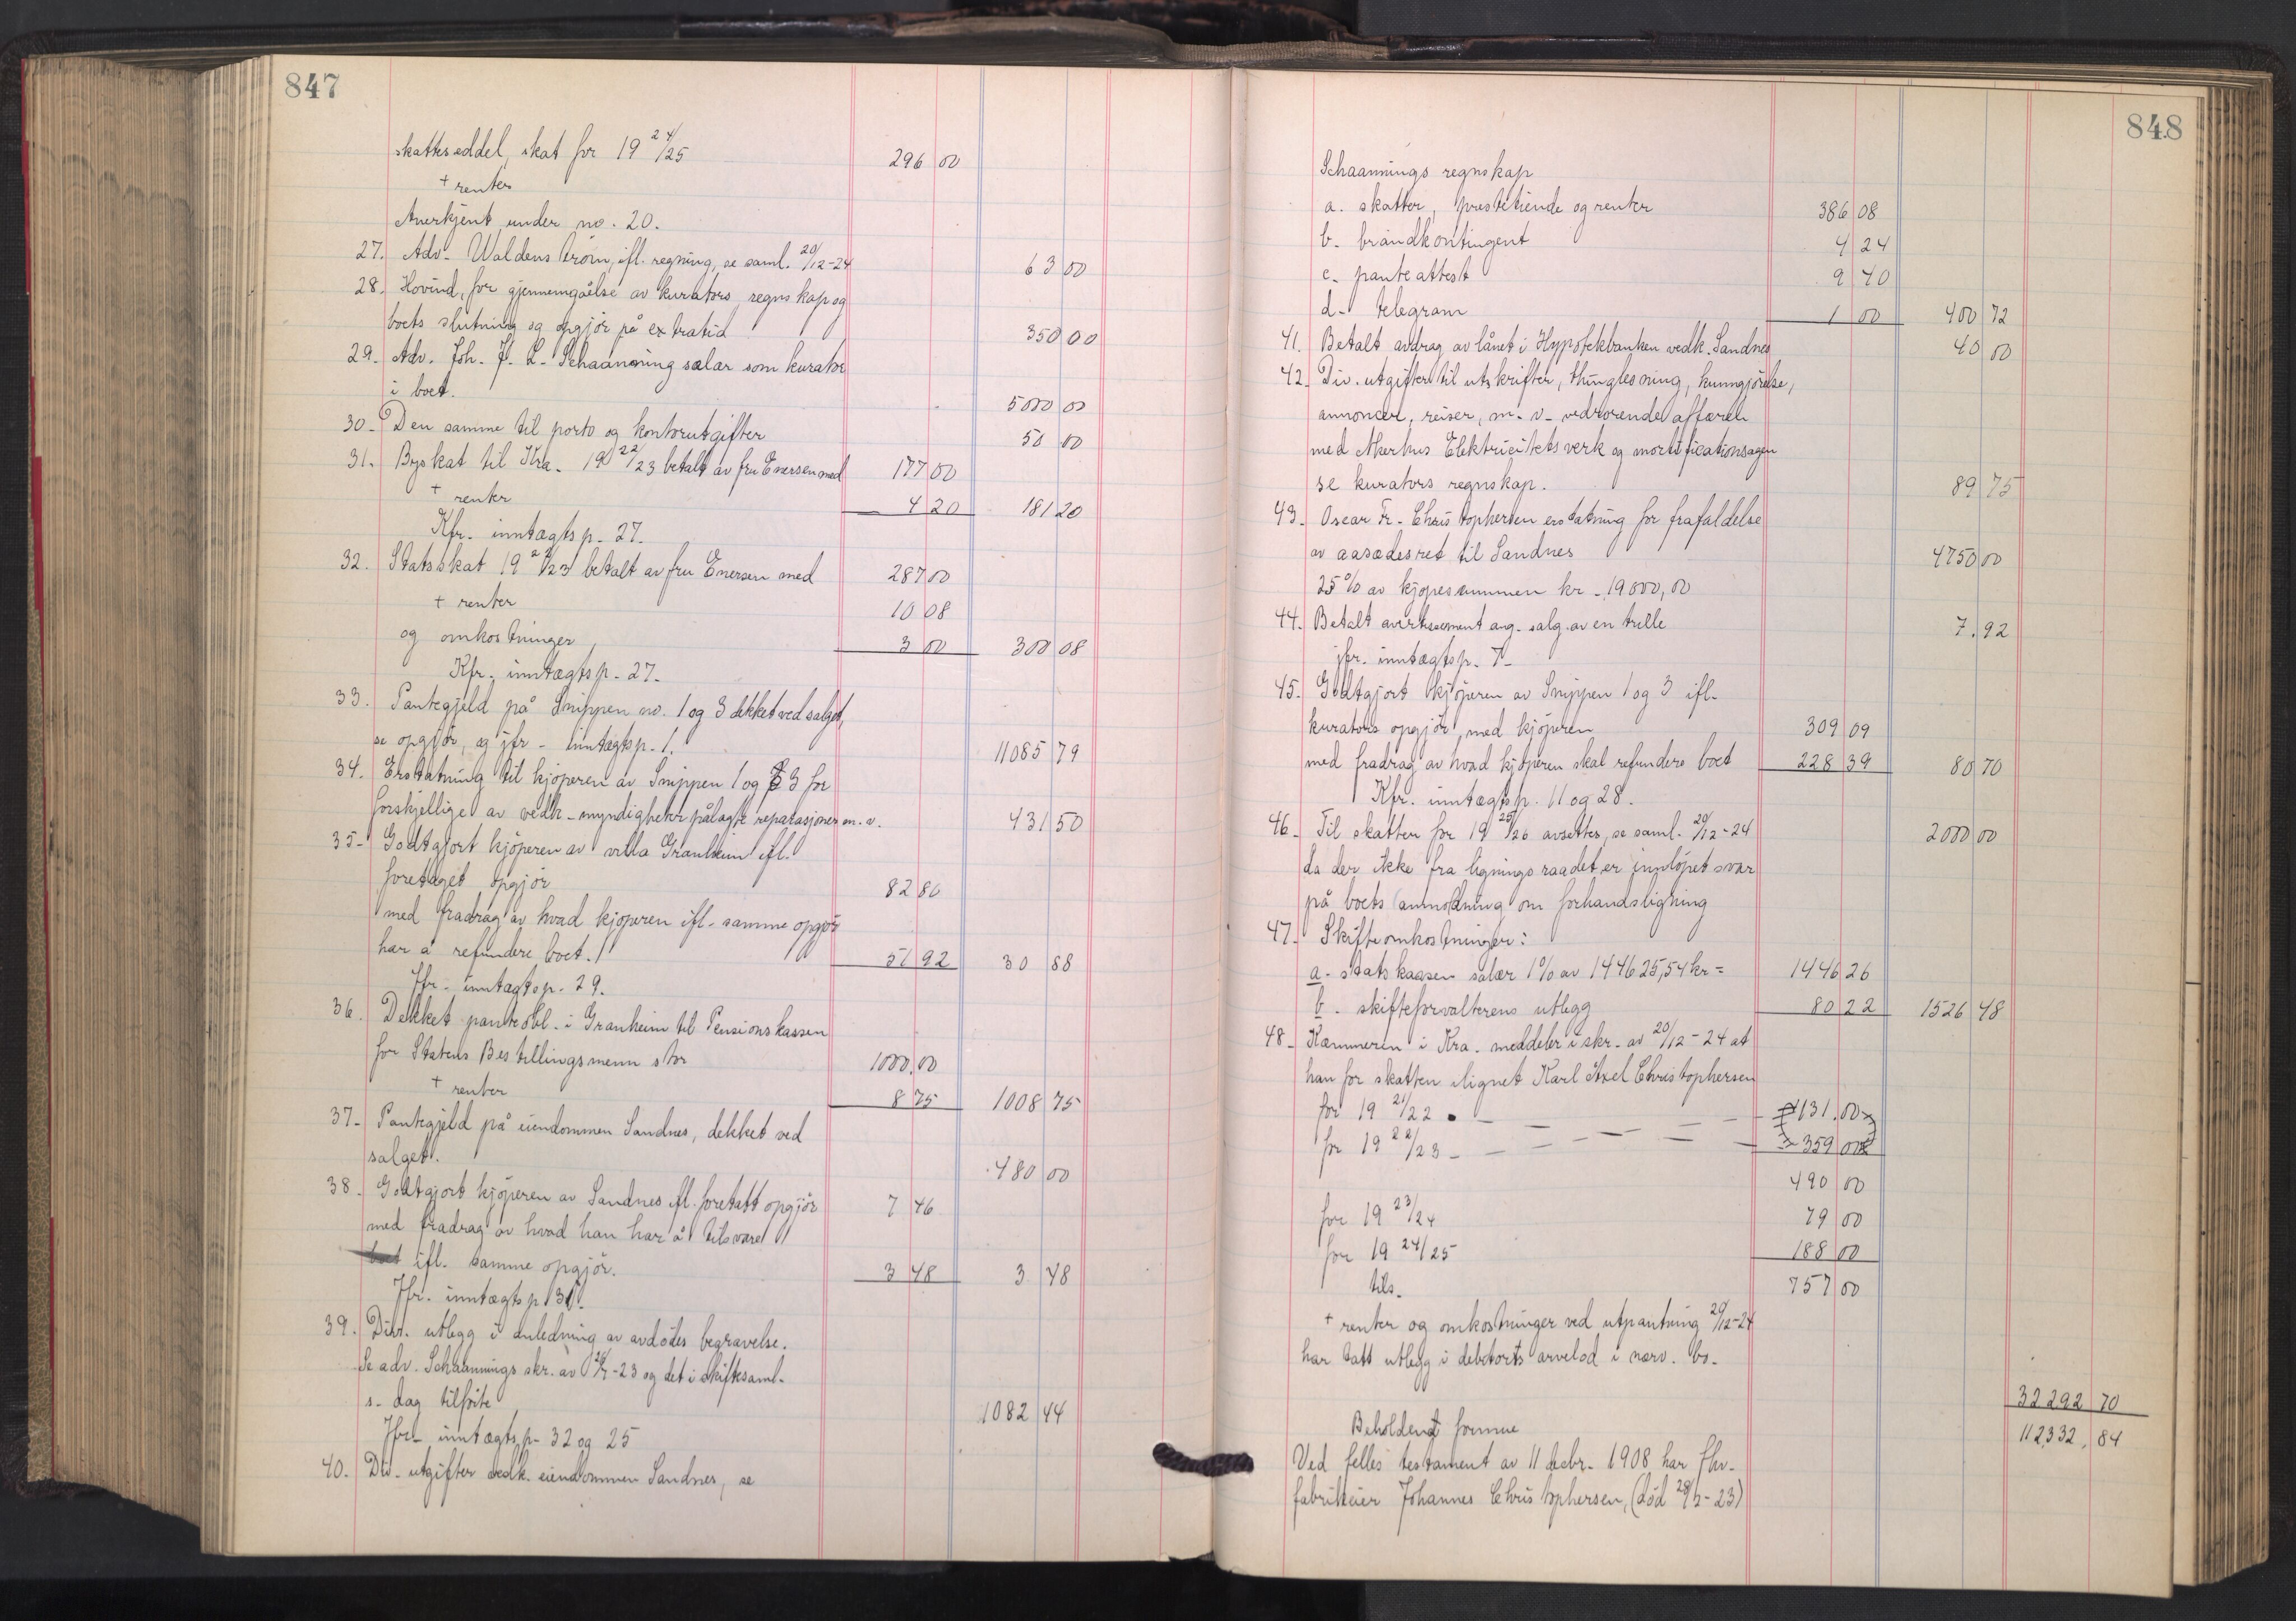 847
skattseddel, skat for 19 24/25 296 00
+ renter
Anerkjent under no. 20.
27. Adv. Waldenström, ifl. regning, se saml. 20/12-24 63 00
28. Hovind, for gjennemgåelse av kurators regnskap og
boets slutning og opgjör på extratid 350 00
29. Adv. Joh. F. L. Schaanning salær som kurator
i boet. 5000 00
30. Den samme til porto og kontorutgifter 50 00
31. Byskat til Kra. 19 22/23 betalt av fru Enersen med 177 00
+ renter 4 20 181 20
Kfr. inntægtsp. 27.
32. Statsskat 19 22/23 betalt av fru Enersen med 287 00
+ renter 10 08
og omkostninger 3 00 300 08
Kfr. inntægtsp. 27.
33. Pantegjeld på Snippen no. 1 og 3 dekket ved salget,
se opgjör, og jfr. inntægtsp. 1. 11085 79
34. Erstatning til kjöperen av Snippen 1 og 3 for
forskjellige av vedk. myndigheter pålagte reparasjoner m. v. 431 50
35. Godtgjort kjöperen av villa Granheim ifl.
foretaget opgjör 82 80
med fradrag av hvad kjöperen ifl. samme opgjör
har å refundere boet. 51 92 30 88
Jfr. inntægtsp. 29.
36. Dekket panteobl. i Granheim til Pensionskassen
for Statens Bestillingsmenn stor 1000.00
+ renter 8 75 1008 75
37. Pantegjeld på eiendommen Sandnes, dekket ved
salget. 480 00
38. Godtgjort kjöperen av Sandnes ifl. foretatt opgjör 7 46
med fradrag av hvad han har å tilsvare
boet ifl. samme opgjör. 3 48 3 48
Jfr. inntægtsp. 31.
39. Div. utlegg i anledning av avdödes begravelse.
Se adv. Schaannings skr. av -23 og det i skiftesaml.
s. dag tilförte 1082 44
Jfr. inntægtsp. 32 og 25
40. Div. utgifter vedk. eiendommen Sandnes, se
848
Schaannings regnskap
a. skatter, prestetiende og renter 386 08
b. brandkontingent 4 24
c. panteattest 9 40
d. telegram 1 00 400 72
41. Betalt avdrag av lånet i Hypotekbanken vedk. Sandnes 40 00
42. Div. utgifter til utskrifter, thinglesning, kunngjörelse,
annoncer, reiser, m. v. vedrörende affæren
med Akerhus Elektricitetsverk og mortificationsagen
se kurators regnskap. 89 75
43. Oscar Fr. Christophersen erstatning for frafaldelse
av aasædesret til Sandnes 4750 00
25% av kjöpesummen kr. 19000,00
44. Betalt avertissement ang. salg av en trille 7.92
jfr. inntægtsp. 7.
45. Godtgjort kjöperen av Snippen 1 og 3 ifl.
kurators opgjör, med kjöperen 309 09
med fradrag av hvad kjöperen skal refundere boet 228 39 80 70
Kfr. inntægtsp. 11 og 28.
46. Til skatter for 19 25/26 avsettes, se saml. 20/12-24 2000 00
da der ikke fra ligningsraadet er innlöpet svar
på boets anmodning om forhandsligning
47. Skifteomkostninger:
a. statskassen salær 1% av 144625,54 kr = 1446 26
b. skifteforvalterens utlegg 80 22 1526 48
48. Kæmneren i Kra. meddeler i skr. av 20/12-24 at
han for skatten ilignet Karl Axel Christophersen
for 19 21/22 131.00
for 19 22/23 359 00
490 00
for 19 23/24 79 00
for 19 24/25 188 00
tils. 757 00
+ renter og omkostninger ved utpantning 20/12-24
har tatt utlegg i debitors arvelod i nærv. bo.
32292 70
Beholdent formue 112,332,84
Ved felles testament av 11 decbr. 1908 har fhv.
fabrikeier Johannes Christophersen, (död 28/2-23)